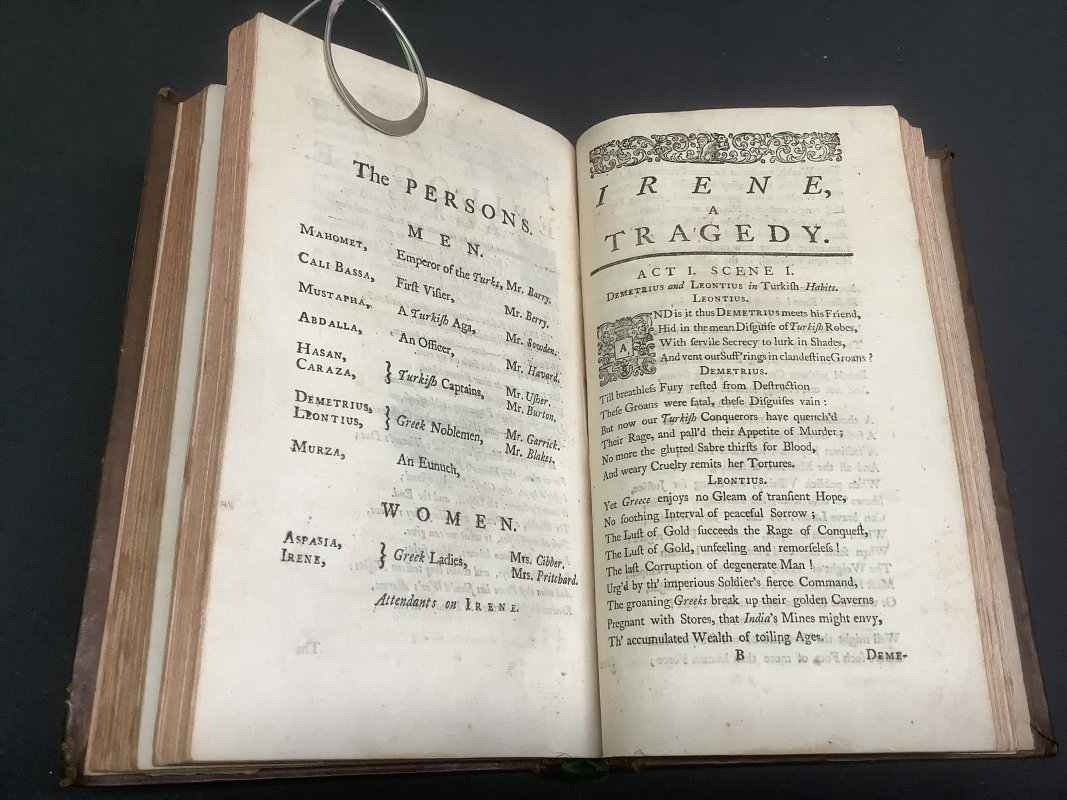 The PERSONS.
MEN.
MAHOMET, Emperor of the Turks, Mr. Barry.
CALI BASSA, First Visier, Mr. Berry.
MUSTAPHA, A Turkish Aga, Mr. Sowden.
ABDALLA, An Officer, Mr. Havard.
HASAN, } Turkish Captains, Mr. Usher.
CARAZA, Mr. Burton.
DEMETRIUS, } Greek Noblemen, Mr. Garrick.
LEONTIUS, Mr. Blakes.
MURZA, An Eunuch,
WOMEN.
ASPASIA, } Greek Ladies, Mrs. Cibber.
IRENE, Mrs. Pritchard.
Attendants on IRENE.
IRENE,
A
TRAGEDY.
ACT I. SCENE I.
DEMETRIUS and LEONTIUS in Turkiſh Habits.
LEONTIUS.
AND is it thus DEMETRIUS meets his Friend,
Hid in the mean Diſguiſe of Turkiſh Robes,
With ſervile Secrecy to lurk in Shades,
And vent our Suff'rings in clandeſtine Groans?
DEMETRIUS.
Till breathleſs Fury reſted from Deſtruction
Theſe Groans were fatal, theſe Diſguiſes vain:
But now our Turkiſh Conquerors have quench'd
Their Rage, and pall'd their Appetite of Murder;
No more the glutted Sabre thirſts for Blood,
And weary Cruelty remits her Tortures.
LEONTIUS.
Yet Greece enjoys no Gleam of tranſient Hope,
No ſoothing Interval of peaceful Sorrow;
The Luſt of Gold ſucceeds the Rage of Conqueſt,
The Luſt of Gold, unfeeling and remorſeleſs!
The laſt Corruption of degenerate Man!
Urg'd by th' imperious Soldier's fierce Command,
The groaning Greeks break up their golden Caverns
Pregnant with Stores, that India's Mines might envy,
Th' accumulated Wealth of toiling Ages.
B DEME-